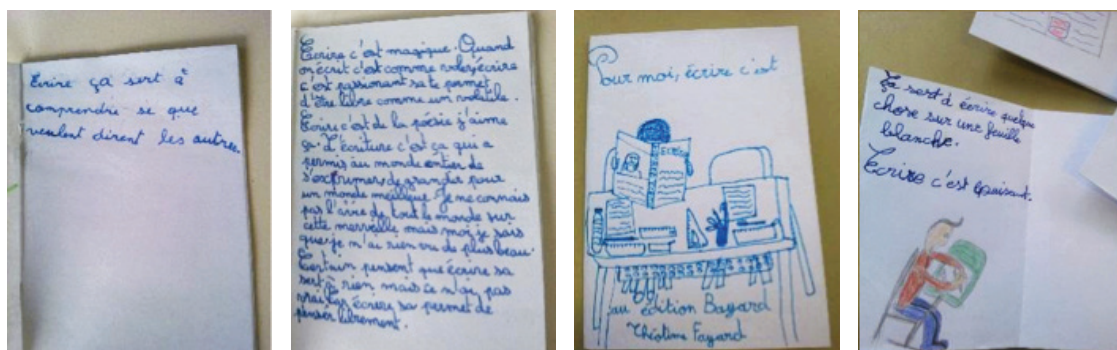 Écrire ça sert à
comprendre se que
veulent dirent les autres.
Écrire c'est magique. Quand
on écrit c'est comme voler, écrire
c'est passionant sa te permet
d'être libre comme un volatile.
Écrire c'est de la poésie j'aime
ça. L'écriture c'est ça qui a
permis au monde entier de
s'exprimer, de grandir pour
un monde meilleur. Je ne connais
pas l'avie de tout le monde sur
cette merveille mais moi je sais
que je n'ai rien vu de plus beau.
Certain pensent que écrire sa
sert à rien mais ce n'ai pas
vrai car écrire sa permet de
penser librement.
Pour moi, écrire c'est
au édition Bayard
Théotime Fayard
Ça sert à écrire quelque
chose sur une feuille
blanche.
Écrire c'est épuisant.